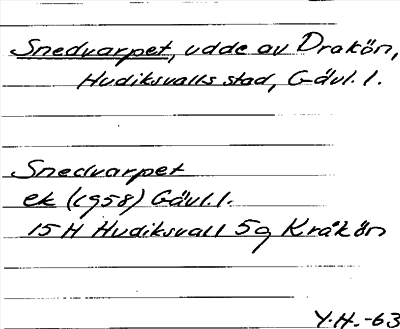 Snedvarpet, udde av Drakön,
Hudiksvalls stad, Gävl. l.
Snedvarpet
ek (1958) Gävl. l.
15 H Hudiksvall 5g Kråkön
Y.H.-63